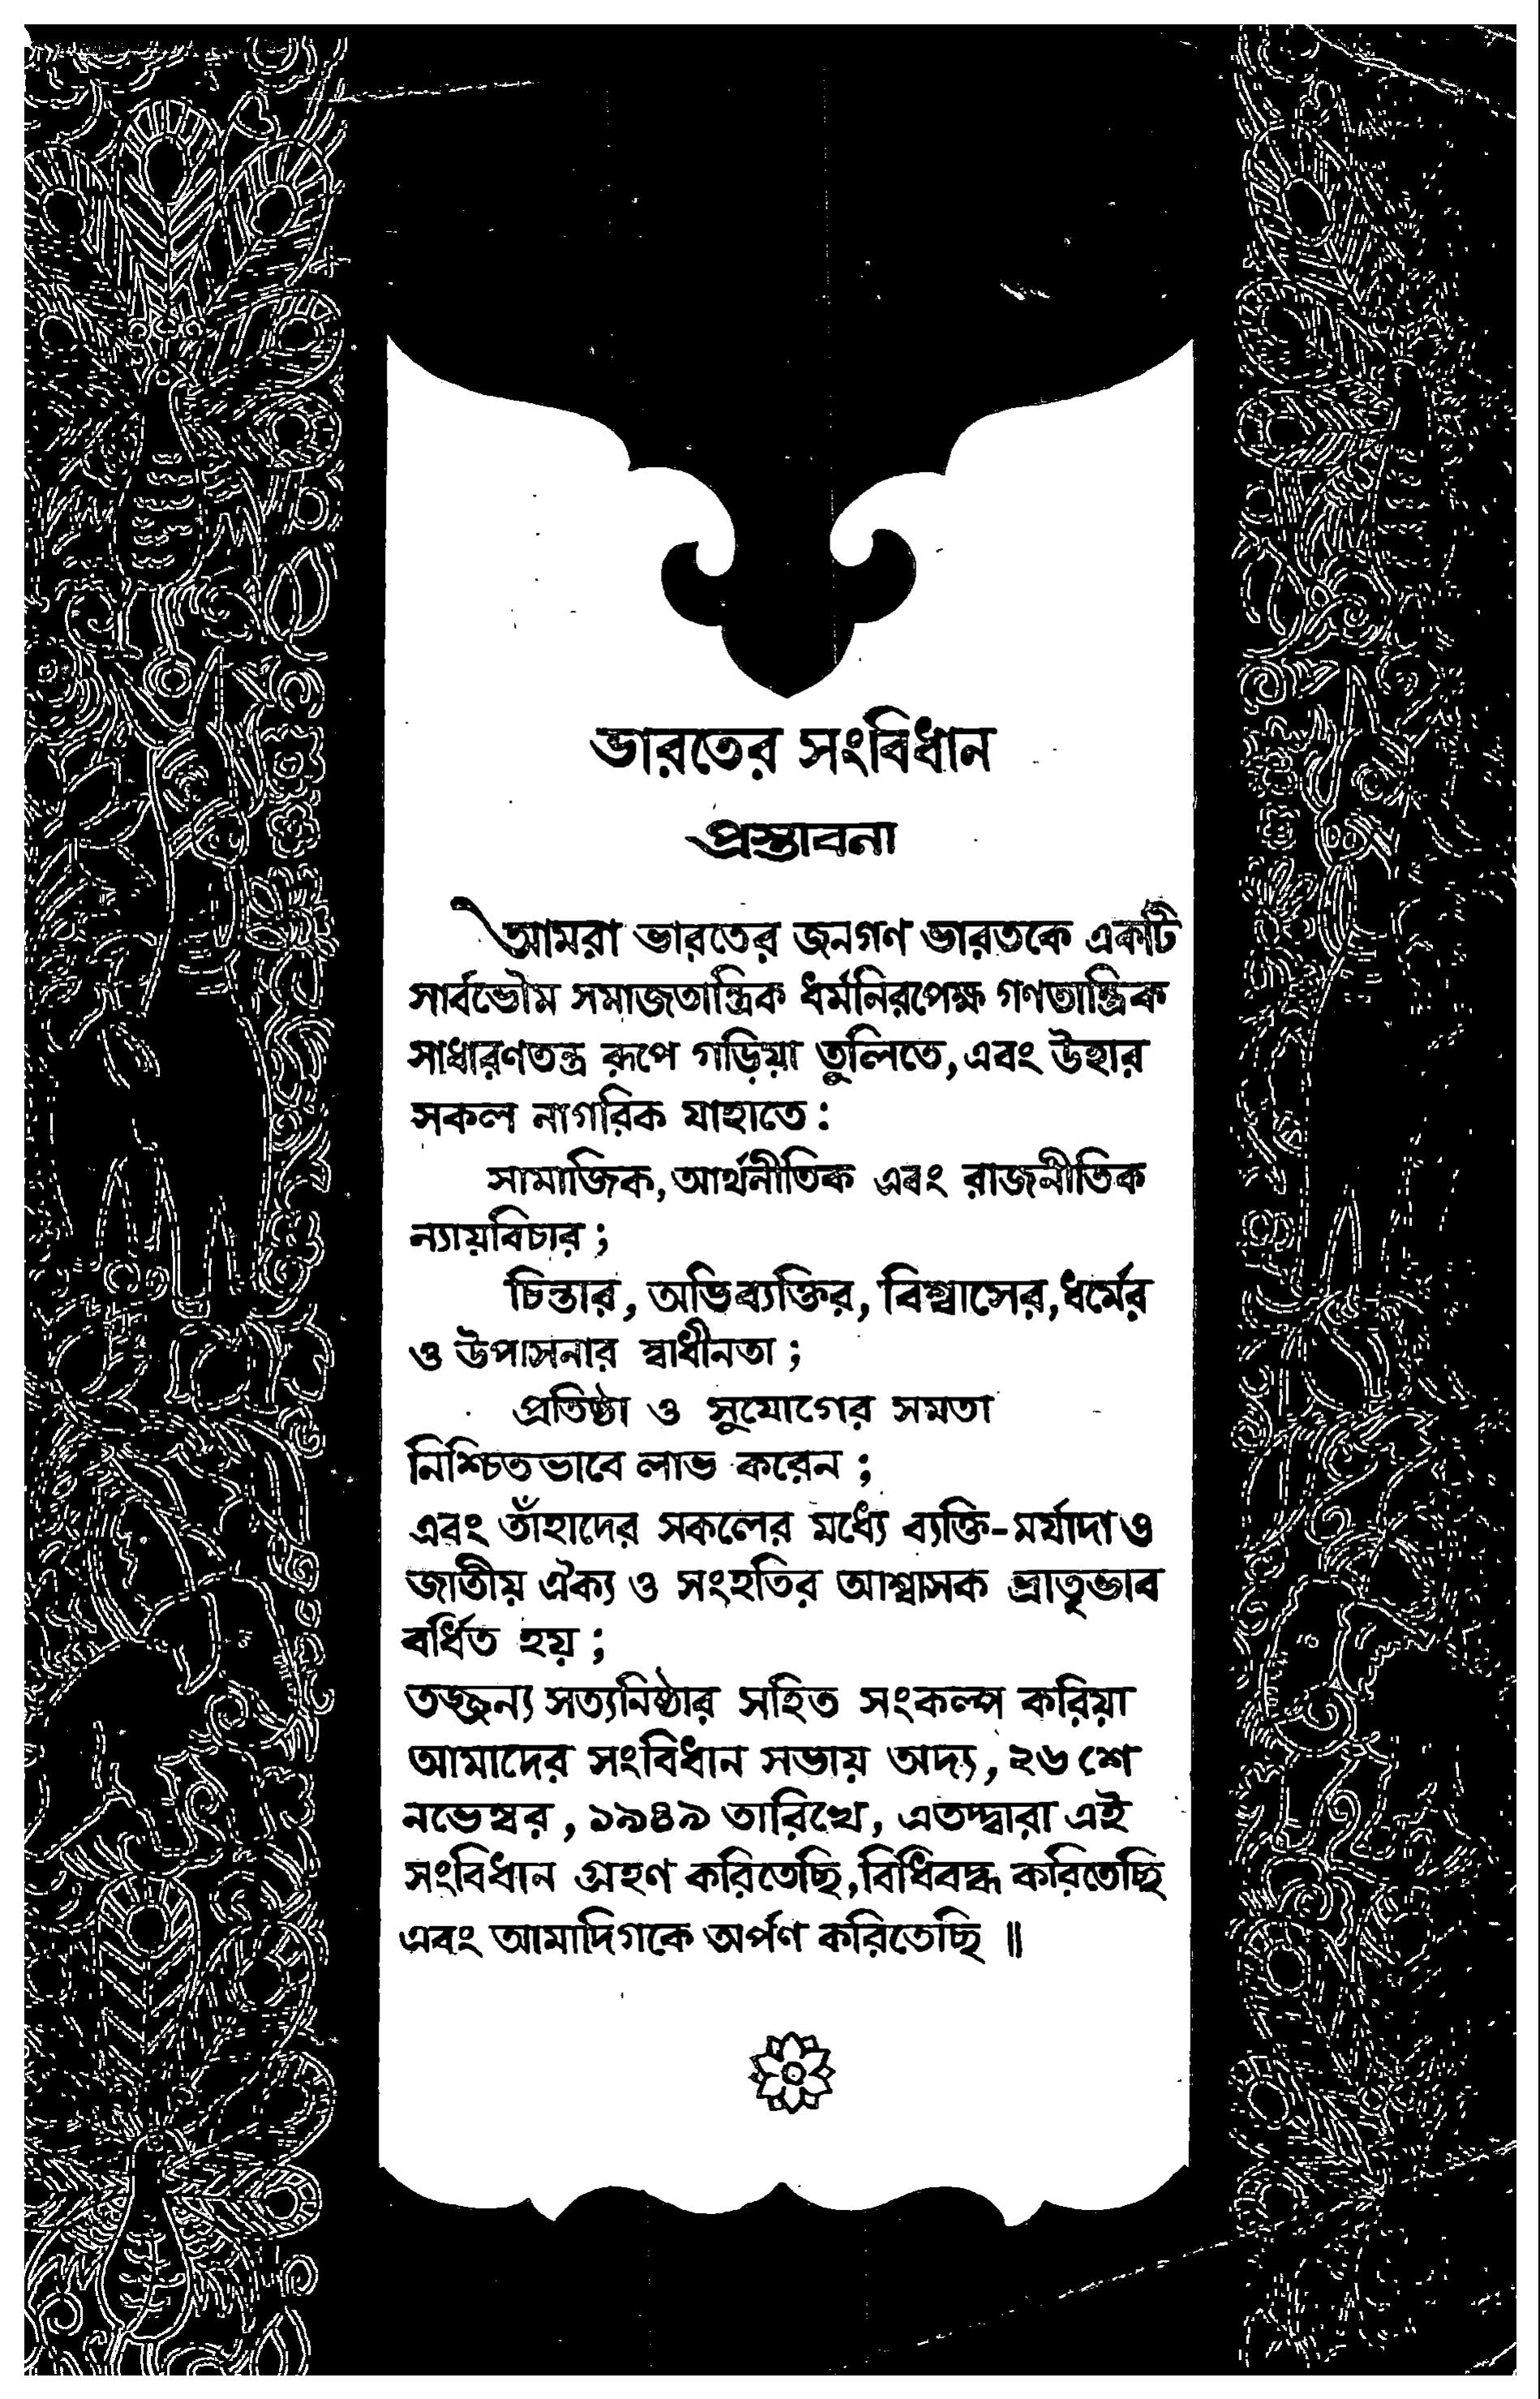 ভারতের সংবিধান
প্রস্তাবনা
আমরা ভারতের জনগণ ভারতকে একটি
সার্বভৌম সমাজতান্ত্রিক ধর্মনিরপেক্ষ গণতান্ত্রিক
সাধারণতন্ত্র রূপে গড়িয়া তুলিতে, এবং উহার
সকল নাগরিক যাহাতে :
সামাজিক, আর্থনীতিক এবং রাজনীতিক
ন্যায়বিচার ;
চিন্তার, অভিব্যক্তির, বিশ্বাসের, ধর্মের
ও উপাসনার স্বাধীনতা ;
প্রতিষ্ঠা ও সুযোগের সমতা
নিশ্চিতভাবে লাভ করেন ;
এবং তাঁহাদের সকলের মধ্যে ব্যক্তি-মর্যাদা ও
জাতীয় ঐক্য ও সংহতির আশ্বাসক ভ্রাতৃভাব
বর্ধিত হয় ;
তজ্জন্য সত্যনিষ্ঠার সহিত সংকল্প করিয়া
আমাদের সংবিধান সভায় অদ্য, ২৬ শে
নভেম্বর, ১৯৪৯ তারিখে, এতদ্দ্বারা এই
সংবিধান গ্রহণ করিতেছি, বিধিবদ্ধ করিতেছি
এবং আমাদিগকে অর্পণ করিতেছি ॥